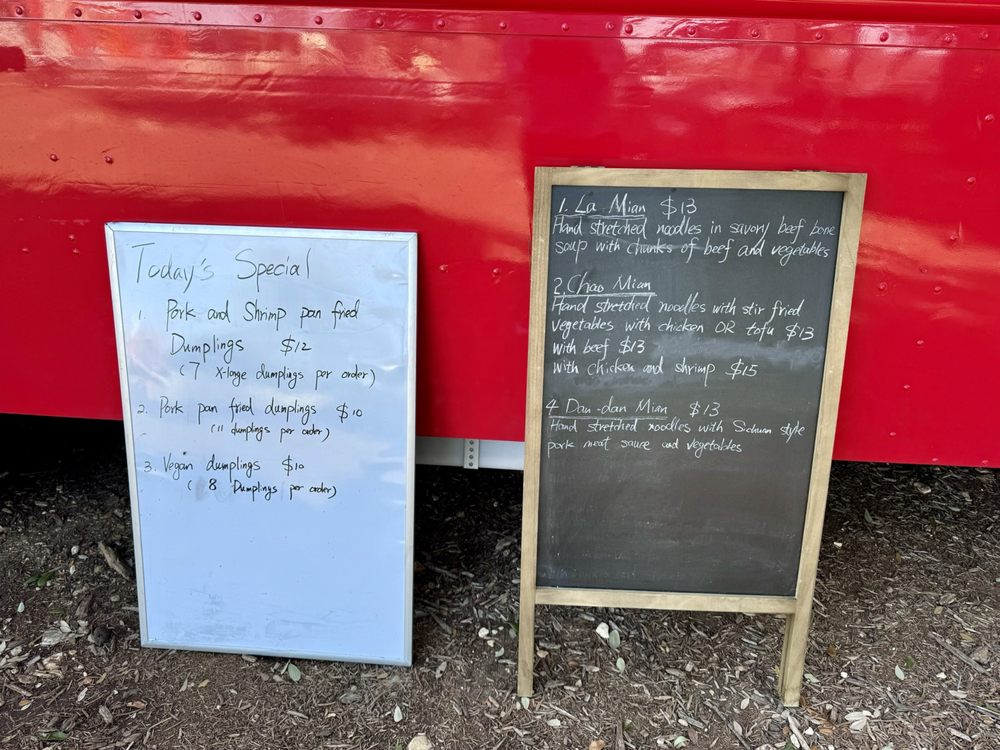 Today's Special
1. Pork and Shrimp pan fried
Dumplings $12
(7 x-large dumplings per order)
2. Pork pan fried dumplings $10
(11 dumplings per order)
3. Vegan dumplings $10
(8 Dumplings per order)
1. La Mian $13
Hand stretched noodles in savory beef bone
soup with chunks of beef and vegetables
2. Chao Mian
Hand stretched noodles with stir fried
vegetables with chicken OR tofu $13
with beef $13
with chicken and shrimp $15
4 Dan-dan Mian $13
Hand stretched noodles with Sichuan style
pork meat sauce and vegetables